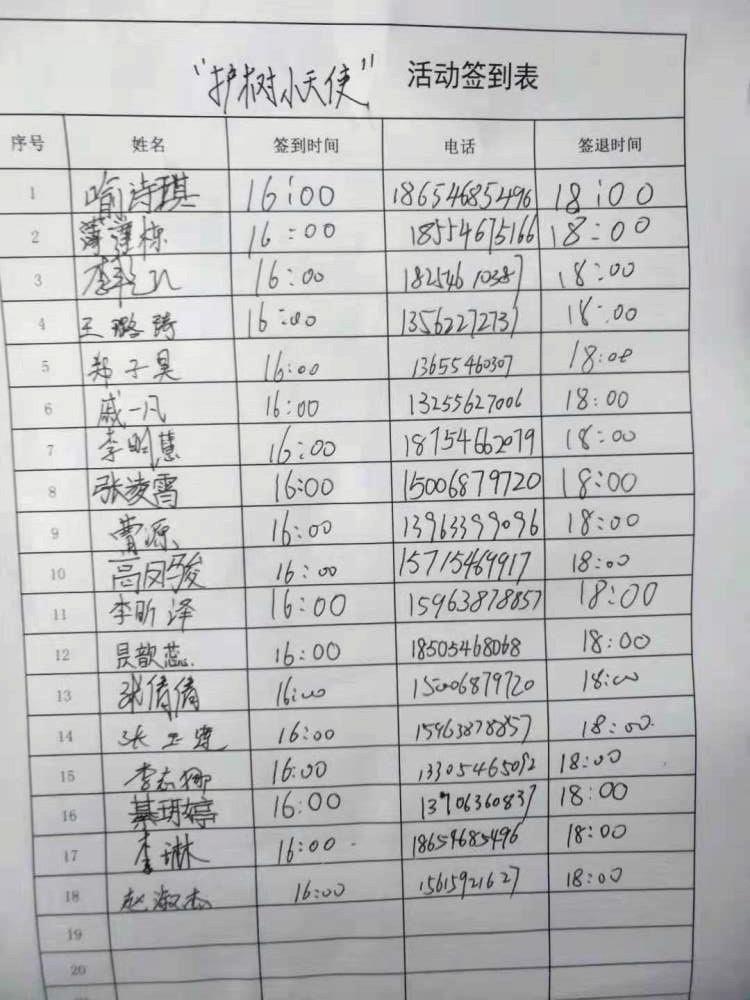 “护树小天使” 活动签到表
序号 姓名 签到时间 电话 签退时间
1 喻诗琪 16:00 18654685496 18:00
2 16:00 18554675166 18:00
3 16:00 18254610387 18:00
4 王璐琦 16:00 13562272737 18:00
5 郑子昊 16:00 13655460307 18:00
6 戚一凡 16:00 13255627006 18:00
7 李明慧 16:00 18754662079 18:00
8 张凌霄 16:00 15006879720 18:00
9 曹源 16:00 13963399096 18:00
10 高凤骏 16:00 15715469917 18:00
11 李昕泽 16:00 15963878857 18:00
12 吴歆蕊 16:00 18505468068 18:00
13 张倩倩 16:00 15006879720 18:00
14 16:00 15963878857 18:00
15 李志娜 16:00 13305465092 18:00
16 綦玥婷 16:00 13706360837 18:00
17 李琳 16:00 18654685496 18:00
18 赵淑杰 16:00 15615921627 18:00
19
20